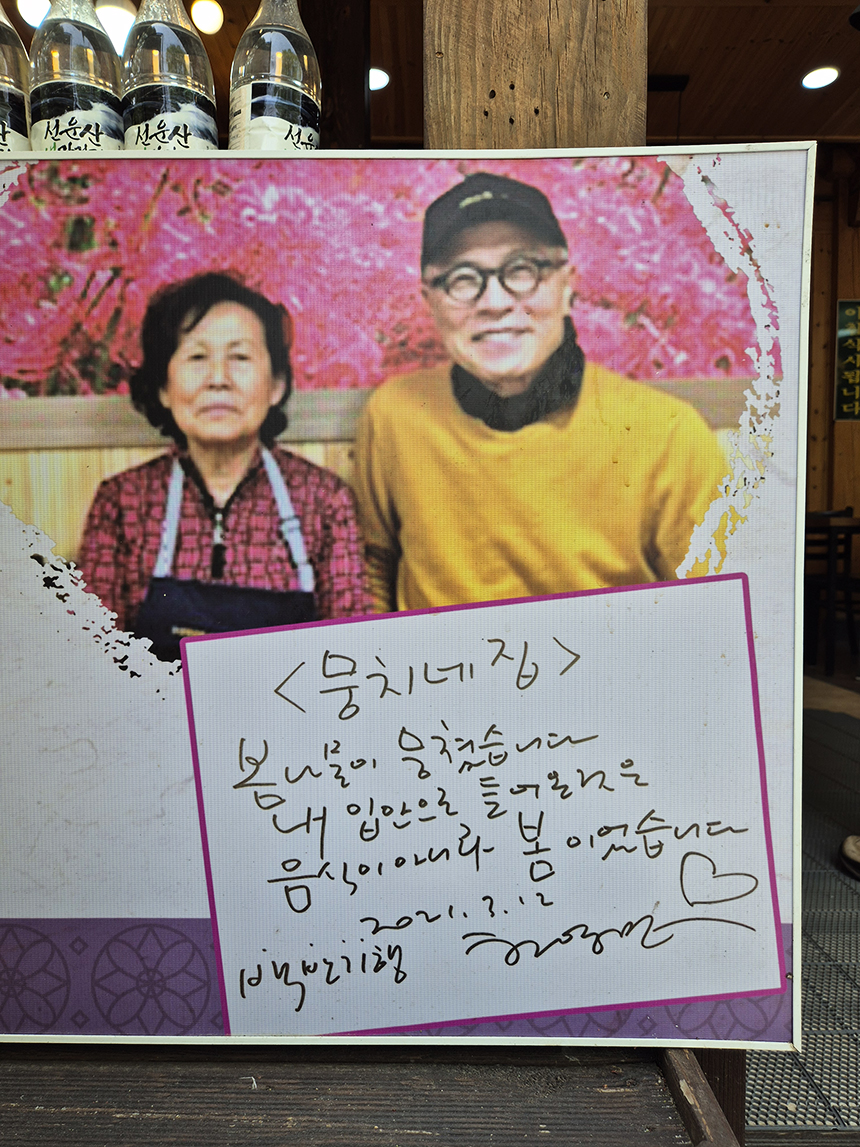 선운산
선운산
선운
<뭉치네집>
봄나물이 뭉쳤습니다
내 입안으로 들어온것은
음식이 아니라 봄이었습니다
2021.3.12
백반기행